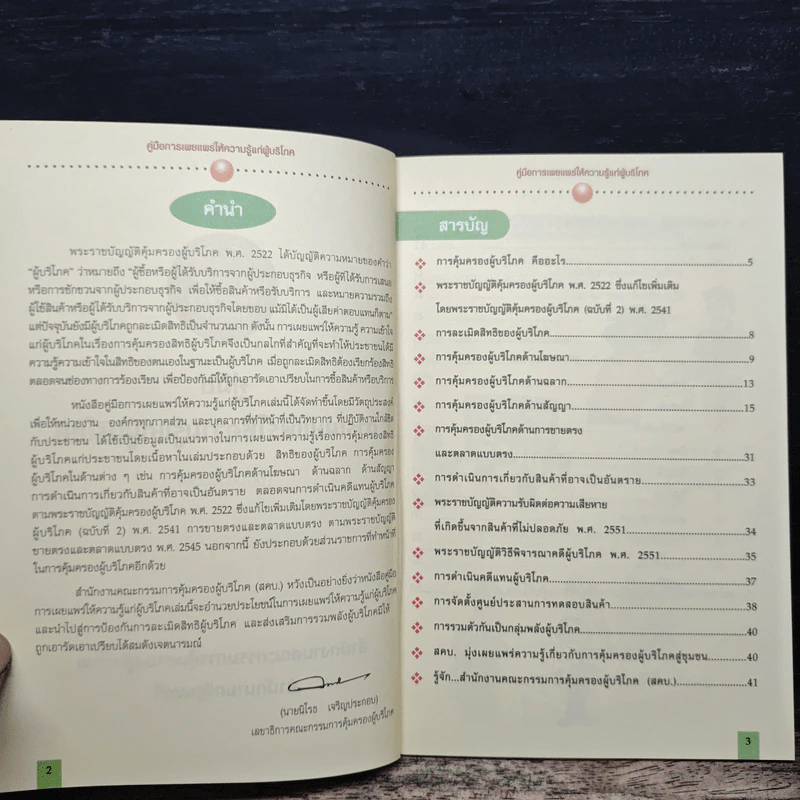 คู่มือการเผยแพร่ให้ความรู้แก่ผู้บริโภค
คำนำ
พระราชบัญญัติคุ้มครองผู้บริโภค พ.ศ. 2522 ได้บัญญัติความหมายของคำว่า
"ผู้บริโภค" ว่าหมายถึง "ผู้ซื้อหรือผู้ได้รับบริการจากผู้ประกอบธุรกิจ หรือผู้ที่ได้รับการเสนอ
หรือการชักชวนจากผู้ประกอบธุรกิจ เพื่อให้ซื้อสินค้าหรือรับบริการ และหมายความรวมถึง
ผู้ใช้สินค้าหรือผู้ได้รับบริการจากผู้ประกอบธุรกิจโดยชอบ แม้มิได้เป็นผู้เสียค่าตอบแทนก็ตาม"
แต่ปัจจุบันยังมีผู้บริโภคถูกละเมิดสิทธิเป็นจำนวนมาก ดังนั้น การเผยแพร่ให้ความรู้ ความเข้าใจ
แก่ผู้บริโภคในเรื่องการคุ้มครองสิทธิผู้บริโภคจึงเป็นกลไกที่สำคัญที่จะทำให้ประชาชนได้มี
ความรู้ความเข้าใจในสิทธิของตนเองในฐานะเป็นผู้บริโภค เมื่อถูกละเมิดสิทธิต้องเรียกร้องสิทธิ
ตลอดจนช่องทางการร้องเรียน เพื่อป้องกันมิให้ถูกเอารัดเอาเปรียบในการซื้อสินค้าหรือบริการ
หนังสือคู่มือการเผยแพร่ให้ความรู้แก่ผู้บริโภคเล่มนี้ได้จัดทำขึ้นโดยมีวัตถุประสงค์
เพื่อให้หน่วยงาน องค์กรทุกภาคส่วน และบุคลากรที่ทำหน้าที่เป็นวิทยากร ที่ปฏิบัติงานใกล้ชิด
กับประชาชน ได้ใช้เป็นข้อมูลเป็นแนวทางในการเผยแพร่ความรู้เรื่องการคุ้มครองสิทธิ
ผู้บริโภคแก่ประชาชนโดยเนื้อหาในเล่มประกอบด้วย สิทธิของผู้บริโภค การคุ้มครอง
ผู้บริโภคในด้านต่าง ๆ เช่น การคุ้มครองผู้บริโภคด้านโฆษณา ด้านฉลาก ด้านสัญญา
การดำเนินการเกี่ยวกับสินค้าที่อาจเป็นอันตราย ตลอดจนการดำเนินคดีแทนผู้บริโภค
ตามพระราชบัญญัติคุ้มครองผู้บริโภค พ.ศ. 2522 ซึ่งแก้ไขเพิ่มเติมโดยพระราชบัญญัติคุ้มครอง
ผู้บริโภค (ฉบับที่ 2) พ.ศ. 2541 การขายตรงและตลาดแบบตรง ตามพระราชบัญญัติ
ขายตรงและตลาดแบบตรง พ.ศ. 2545 นอกจากนี้ ยังประกอบด้วยส่วนราชการที่ทำหน้าที่
ในการคุ้มครองผู้บริโภคอีกด้วย
สำนักงานคณะกรรมการคุ้มครองผู้บริโภค (สคบ.) หวังเป็นอย่างยิ่งว่าหนังสือคู่มือ
การเผยแพร่ให้ความรู้แก่ผู้บริโภคเล่มนี้จะอำนวยประโยชน์ในการเผยแพร่ให้ความรู้แก่ผู้บริโภค
และนำไปสู่การป้องกันการละเมิดสิทธิผู้บริโภค และส่งเสริมการรวมพลังผู้บริโภคมิให้
ถูกเอารัดเอาเปรียบได้สมดังเจตนารมณ์
(นายนิโรธ เจริญประกอบ)
เลขาธิการคณะกรรมการคุ้มครองผู้บริโภค
2
คู่มือการเผยแพร่ให้ความรู้แก่ผู้บริโภค
สารบัญ
❖ การคุ้มครองผู้บริโภค คืออะไร...5
❖ พระราชบัญญัติคุ้มครองผู้บริโภค พ.ศ. 2522 ซึ่งแก้ไขเพิ่มเติม
โดยพระราชบัญญัติคุ้มครองผู้บริโภค (ฉบับที่ 2) พ.ศ. 2541
❖ การละเมิดสิทธิของผู้บริโภค...8
❖ การคุ้มครองผู้บริโภคด้านโฆษณา...9
❖ การคุ้มครองผู้บริโภคด้านฉลาก...13
❖ การคุ้มครองผู้บริโภคด้านสัญญา...15
❖ การคุ้มครองผู้บริโภคด้านการขายตรง
และตลาดแบบตรง...31
❖ การดำเนินการเกี่ยวกับสินค้าที่อาจเป็นอันตราย...33
❖ พระราชบัญญัติความรับผิดต่อความเสียหาย
ที่เกิดขึ้นจากสินค้าที่ไม่ปลอดภัย พ.ศ. 2551...34
❖ พระราชบัญญัติวิธีพิจารณาคดีผู้บริโภค พ.ศ. 2551...35
❖ การดำเนินคดีแทนผู้บริโภค...37
❖ การจัดตั้งศูนย์ประสานการทดสอบสินค้า...38
❖ การรวมตัวกันเป็นกลุ่มพลังผู้บริโภค...40
❖ สคบ. มุ่งเผยแพร่ความรู้เกี่ยวกับการคุ้มครองผู้บริโภคสู่ชุมชน...40
❖ รู้จัก...สำนักงานคณะกรรมการคุ้มครองผู้บริโภค (สคบ.)...41
3